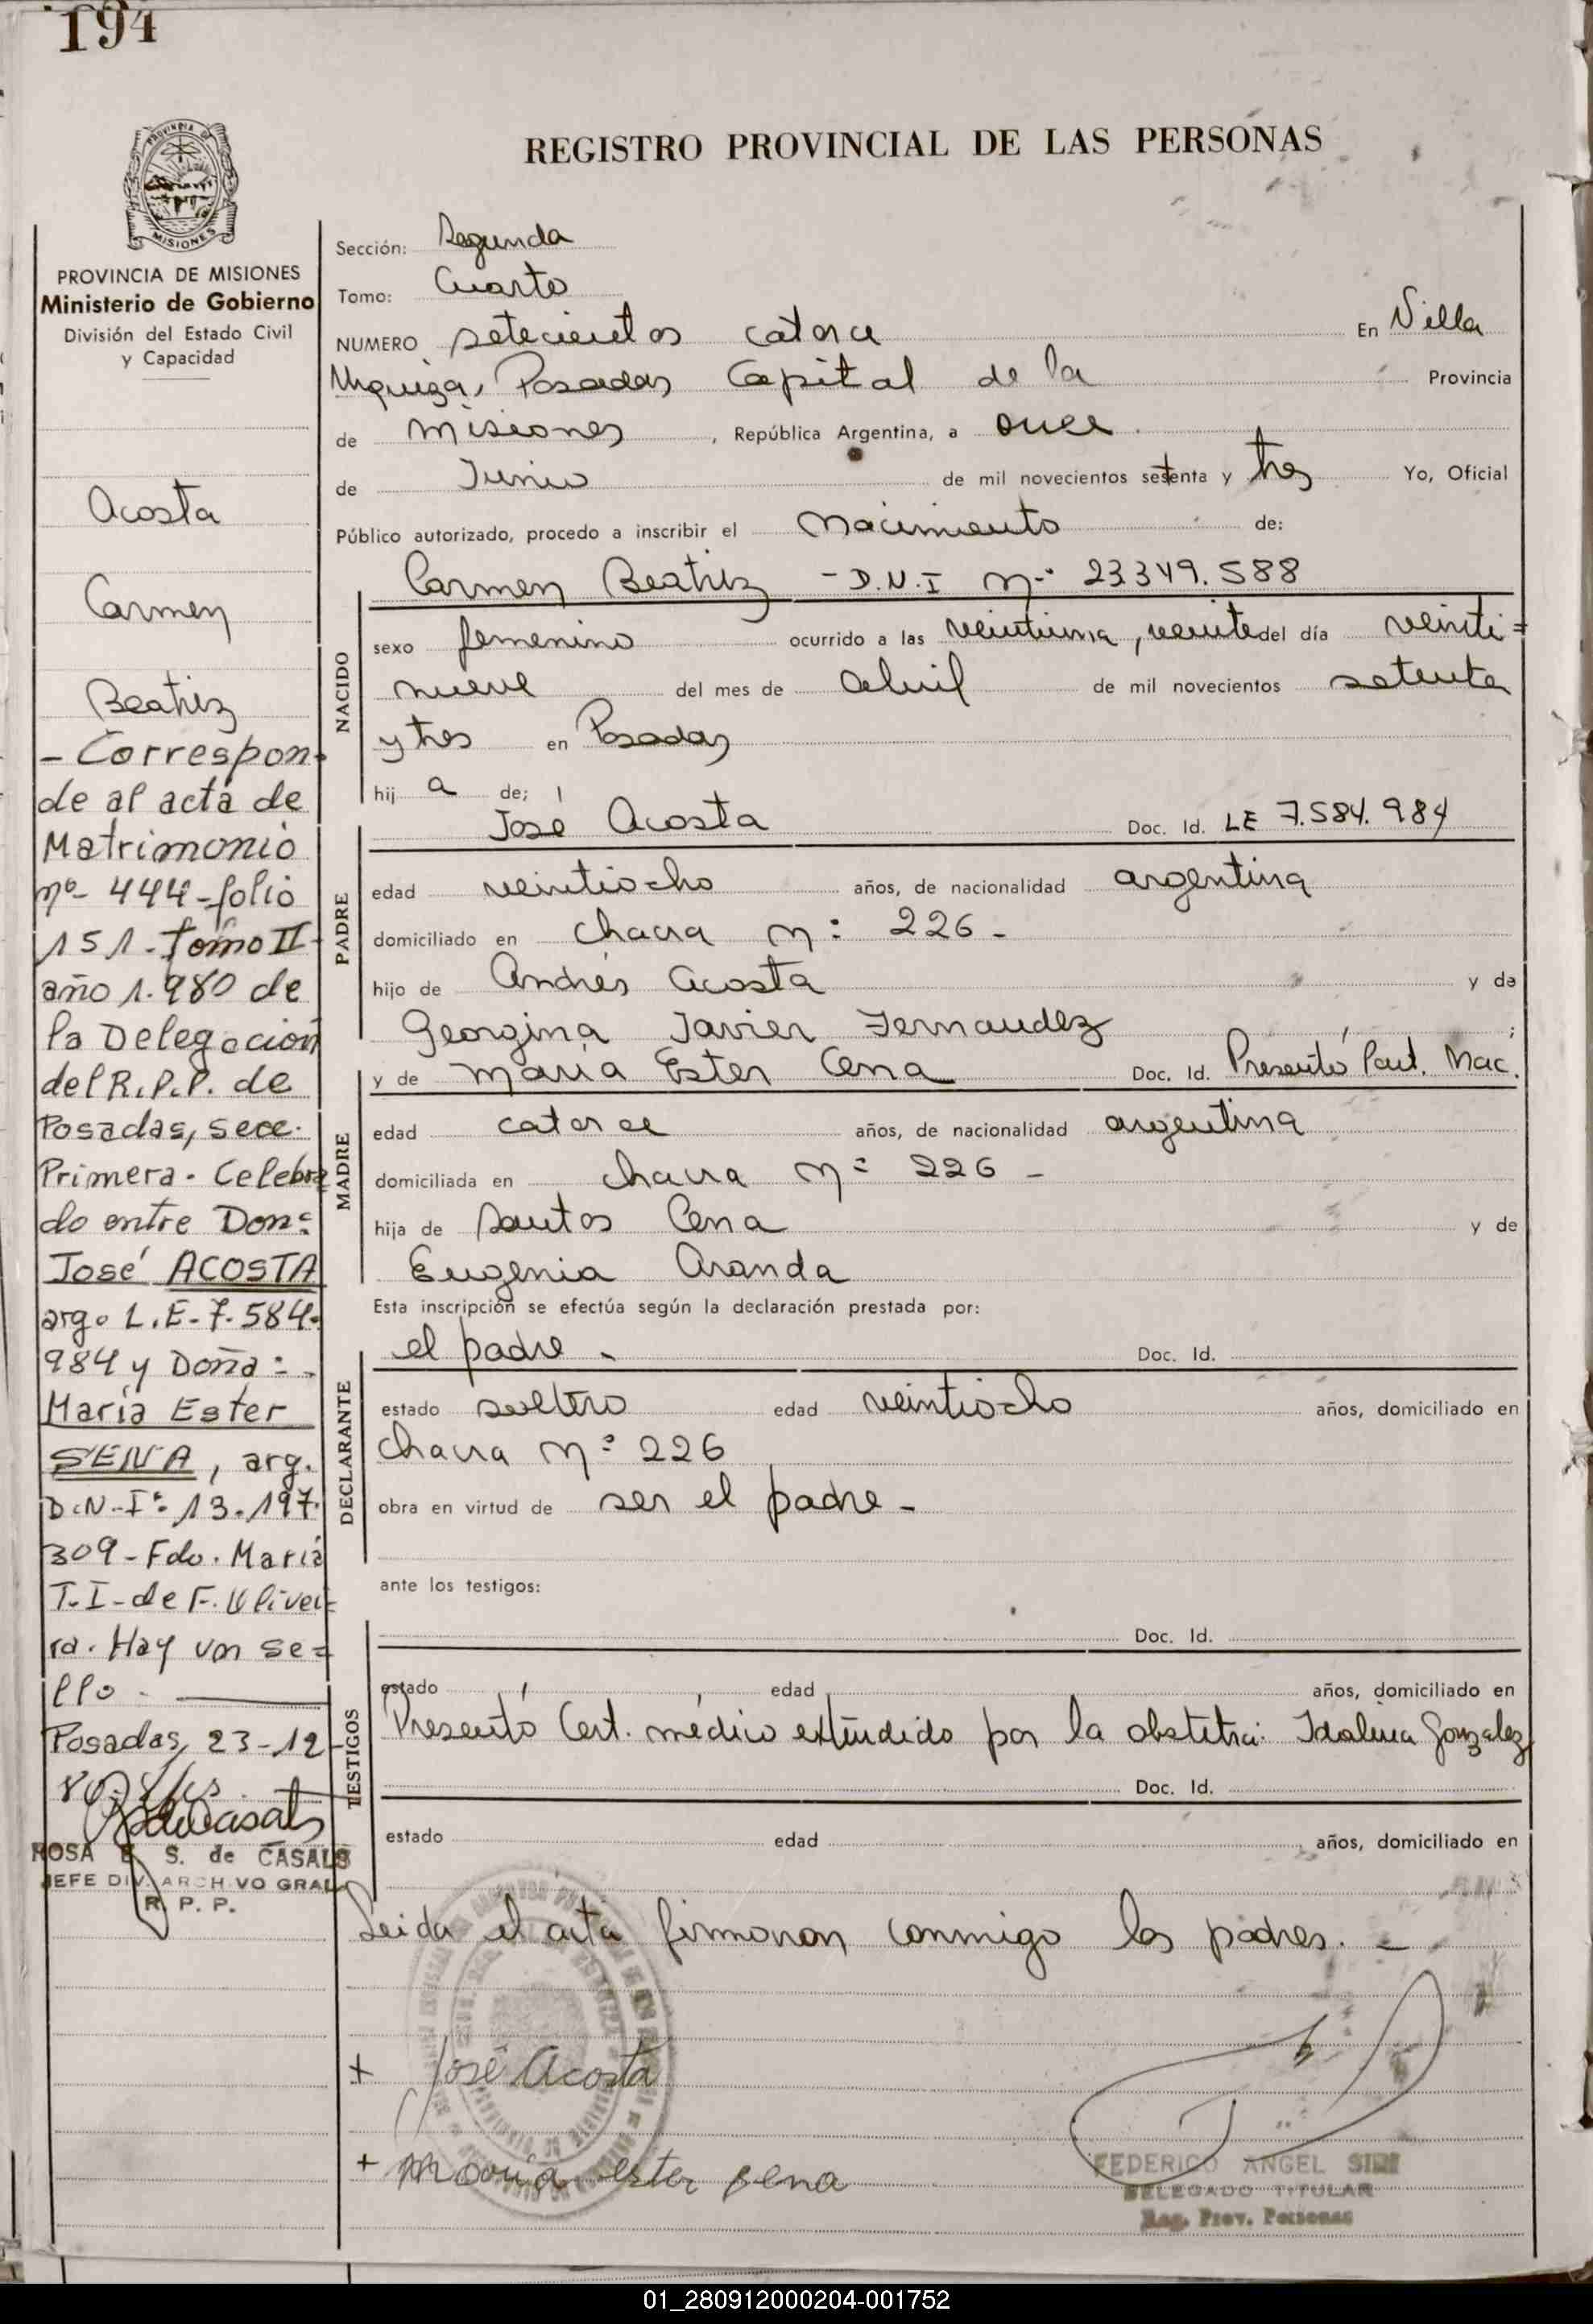 194
REGISTRO PROVINCIAL DE LAS PERSONAS
MISIONES
PROVINCIA DE MISIONES
Ministerio de Gobierno
División del Estado Civil
y Capacidad
Acosta
Carmen
Beatriz
- Correspon-
de al acta de
Matrimonio
nº- 444-folio
151-Tomo II-
año 1.980 de
la Delegación
del R.P.P. de
Posadas, secc.
Primera. Celebra
do entre Don:
José ACOSTA
arg. L.E-7.584.
984 y Doña:-
María Ester
SENA, arg.
D.N.I: 13.197.
309-Fdo. María
T.I-de F. Olivei=
ra. Hay un se=
llo.
Posadas, 23-12-
80.
ROSA E. S. de CASALS
JEFE DIV. ARCHIVO GRAL.
R. P. P.
Sección: Segunda
Tomo: Cuarto
NUMERO setecientos catorce En Villa
Urquiza, Posadas Capital de la Provincia
de Misiones , República Argentina, a once
de Junio de mil novecientos setenta y tres Yo, Oficial
Público autorizado, procedo a inscribir el nacimiento de:
Carmen Beatriz - D.N.I nº 23349.588
NACIDO
sexo femenino ocurrido a las veintiuna, veinte del día veinti=
nueve del mes de abril de mil novecientos setenta
y tres en Posadas
hij a de;
José Acosta Doc. Id. LE 7.584.984
PADRE
edad veintiocho años, de nacionalidad argentina
domiciliado en chacra nº 226-
hijo de Andrés Acosta y de
Georgina Javier Fernandez
y de María Ester Cena Doc. Id. Presentó Part. Nac.
MADRE
edad catorce años, de nacionalidad argentina
domiciliada en chacra nº 226-
hija de Santos Cena y de
Eugenia Aranda
Esta inscripción se efectúa según la declaración prestada por:
el padre - Doc. Id.
DECLARANTE
estado soltero edad veintiocho años, domiciliado en
chacra nº 226
obra en virtud de ser el padre-
ante los testigos:
Doc. Id.
TESTIGOS
estado edad años, domiciliado en
Presentó Cert. médico extendido por la obstetri. Idalina Gonzalez
Doc. Id.
estado edad años, domiciliado en
Leida el acta firmaron conmigo los padres. -
+ José Acosta
+ María ester sena
FEDERICO ANGEL SIRI
DELEGADO TITULAR
Reg. Prov. Personas
01_280912000204-001752